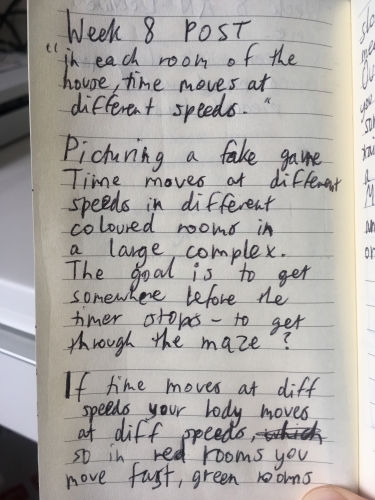 Week 8 POST
"in each room of the
house, time moves at
different speeds."
Picturing a fake game
Time moves at different
speeds in different
coloured rooms in
a large complex.
The goal is to get
somewhere before the
timer stops - to get
through the maze?
If time moves at diff
speeds your body moves
at diff speeds, which
so in red rooms you
move fast, green rooms